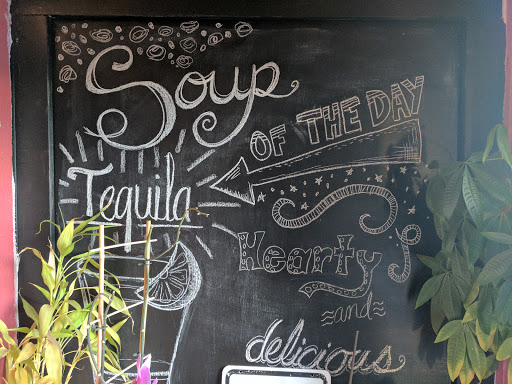 Soup
OF THE DAY
Tequila
Hearty
and
delicious